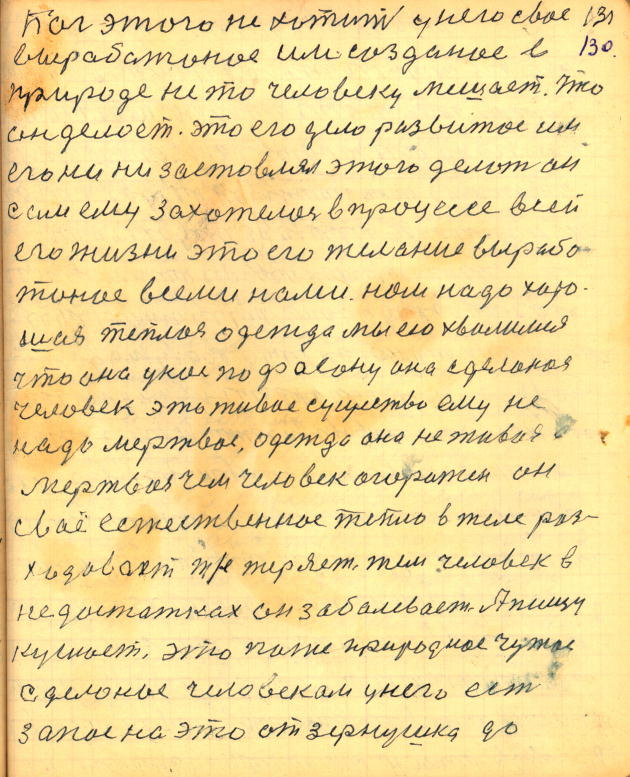 Бог этого не хотит у него свое 131
вырабатоное им созданое в 130.
природе не то человеку мешает. Что
он делоет. это его дело развитое им
его ни заставлял этого делот он
сам ему захотелоя в процессе всей
его жизни это его желание вырабо
таное всеми нами. нам надо хоро-
шая теплоя одежда мы ею хвалимия
что она у кое по фасону она сделоноя
человек это живое существо ему не
надо мертвое, одежда она не живая а
мертвоя чем человек огоражен он
своё естественное тепло в теле рас-
ходовает т/е теряет. тем человек в
недостатках он заболевает. А пищу
кушает. это тоже природное чужое
сделоное человекам у него ест
запас на это от зернушка до